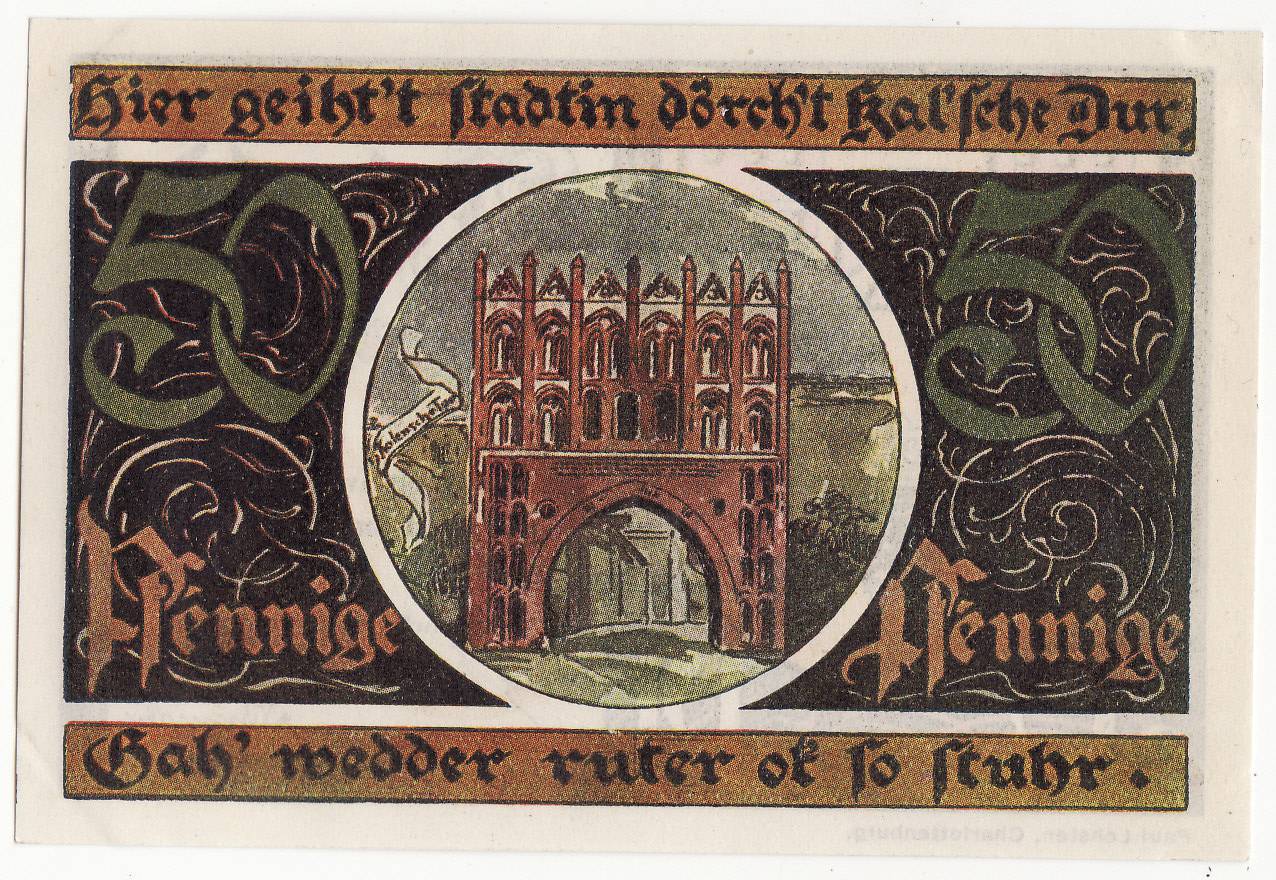 Hier geiht't stadtin dörch't Kal'sche Dur,
50
50
Kolensche Tor
Pfennige
Pfennige
Gah' wedder ruter ok so stuhr.
Paul Lehsten, Charlottenburg.